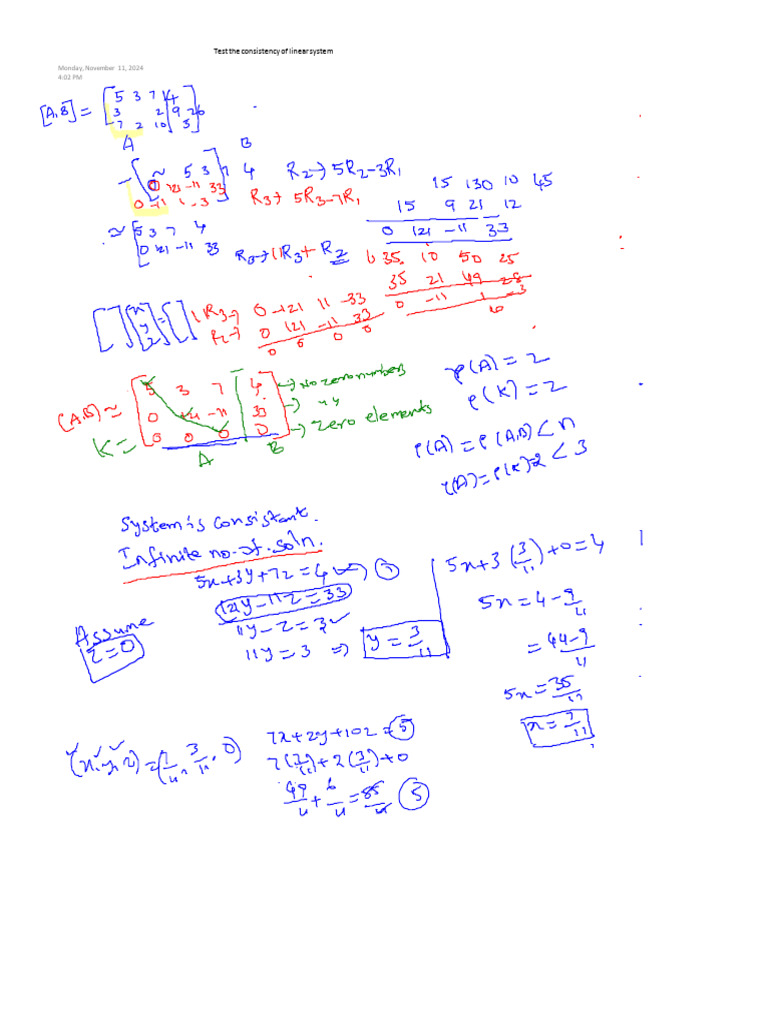 Test the consistency of linear system
Monday, November 11, 2024
4:02 PM
[A,B] = [5 3 7 | 4
3 2 | 9 26
7 2 10 | 5]
A B
~ [5 3 7 4 R2→5R2-3R1
0 121 -11 33 R3→5R3-7R1
0 -11 1 -3
15 130 10 45
15 9 21 12
0 121 -11 33
≈ [5 3 7 4
0 121 -11 33 R3→11R3+R2
35 10 50 25
35 21 49 28
0 -11 1 -3
[ ] [x y z] = [ ]
11R3→ 0 -121 11 -33
R2→ 0 121 -11 33
0 0 0 0
(A,B) ≈ [5 3 7 | 4] → No zero numbers
0 121 -11 | 33 → 4 4
K = 0 0 0 | 0 → zero elements
A B
ρ(A) = 2
ρ(K) = 2
ρ(A) = ρ(A,B) < n
r(A) = ρ(K) 2 < 3
System is consistant.
Infinite no. of. soln.
5x+3y+7z=4 → ①
121y-11z=33
11y-z=3
11y=3 ⇒ y = 3/11
Assume
z=0
5x+3(3/11)+0=4
5x=4-9/11
=44-9/11
5x=35/11
x=7/11
(x,y,z)=(7/11, 3/11, 0)
7x+2y+10z=5
7(7/11)+2(3/11)+0
49/11+6/11=55/11 5